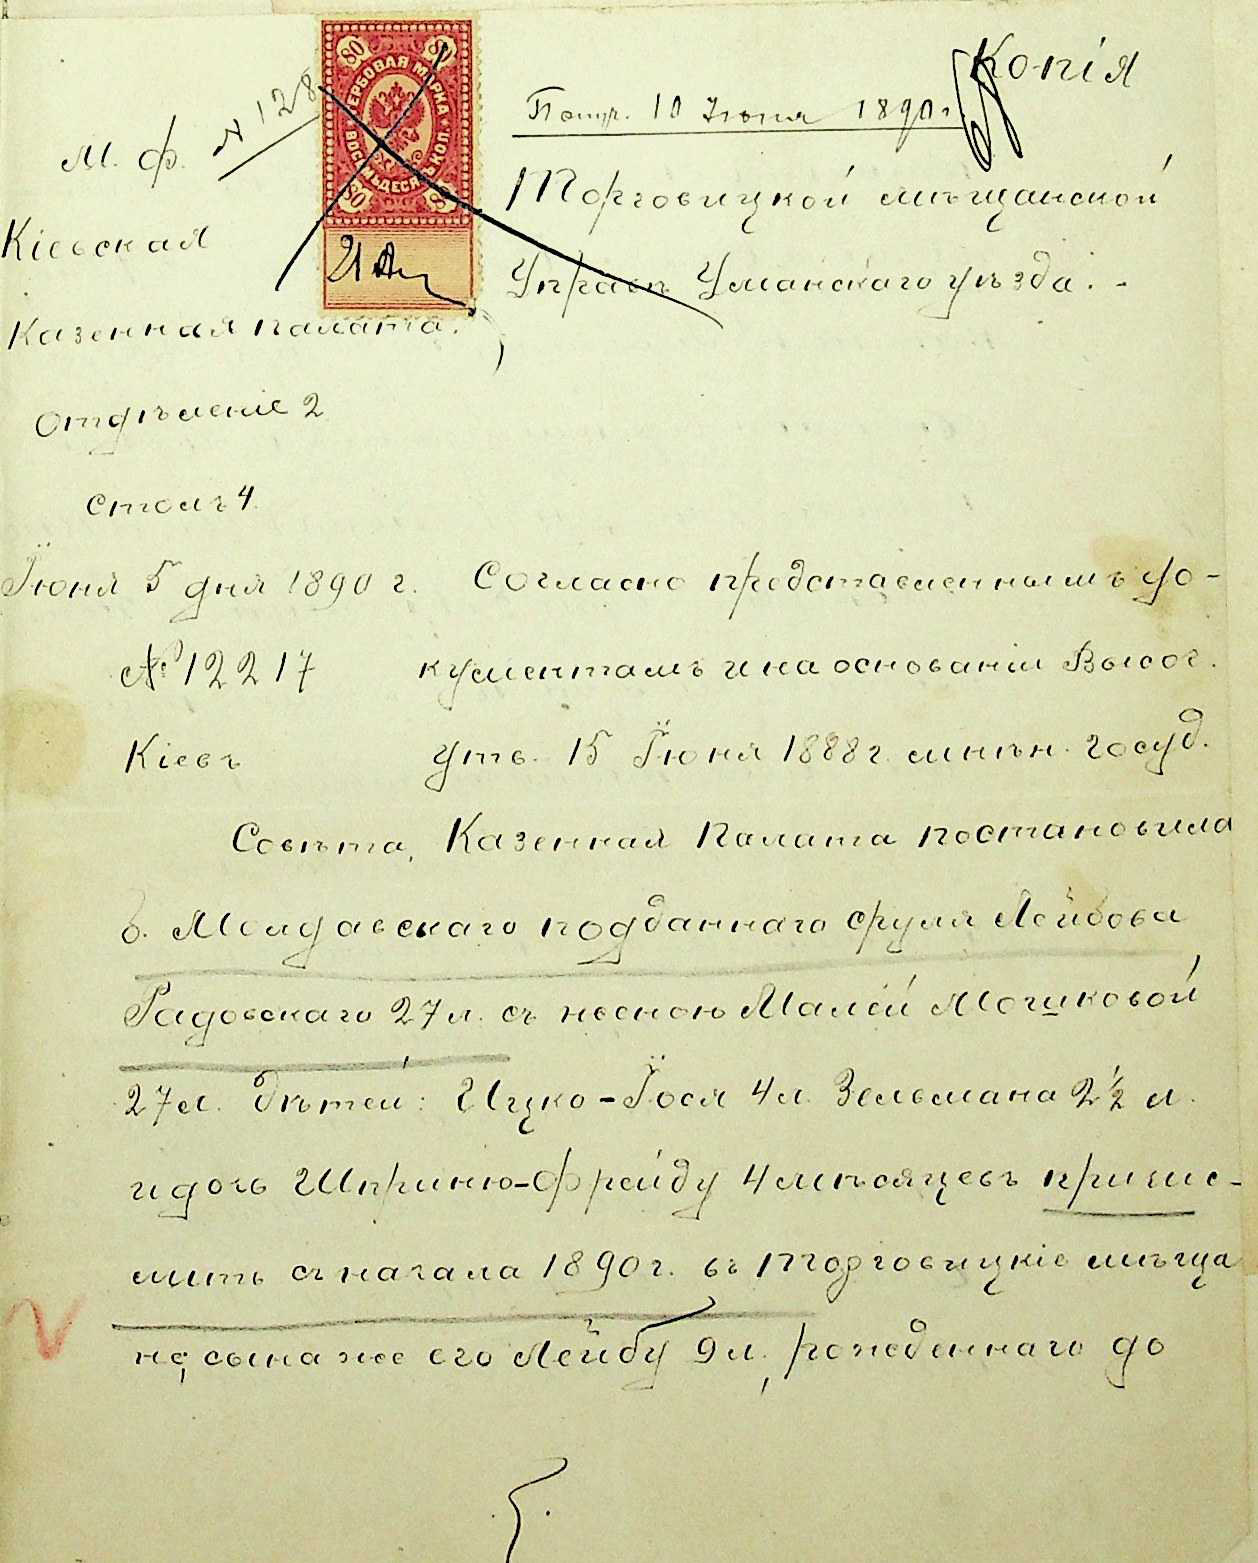 Копія
№ 128
80 80
ГЕРБОВАЯ МАРКА
ВОСЕМЬДЕСЯТЪ КОП.
80 80
10 Іюня 1890 г.
М. Ф.
Торговицкой мѣщанской
Кіевская
Управѣ Уманскаго уѣзда. -
Казенная палата.
Отдѣленіе 2
Столъ 4.
Іюня 5 дня 1890 г. Согласно представленнымъ до-
№ 12217 кументамъ и на основаніи Высоч.
Кіевъ утв. 15 Іюня 1888 г. мнѣн. Госуд.
Совѣта, Казенная Палата постановила
б. Молдавскаго подданнаго Сруля Лейбова
Радовскаго 27 л. съ женою Малей Мошковой
27 л. дѣтей: Ицко-Іося 4 л. Зельмана 2½ л.
и дочь Шприню-Фрейду 4 мѣсяцевъ причис-
лить съ начала 1890 г. въ Торговицкіе мѣща
не, сына же его Лейбу 9 л., рожденнаго до